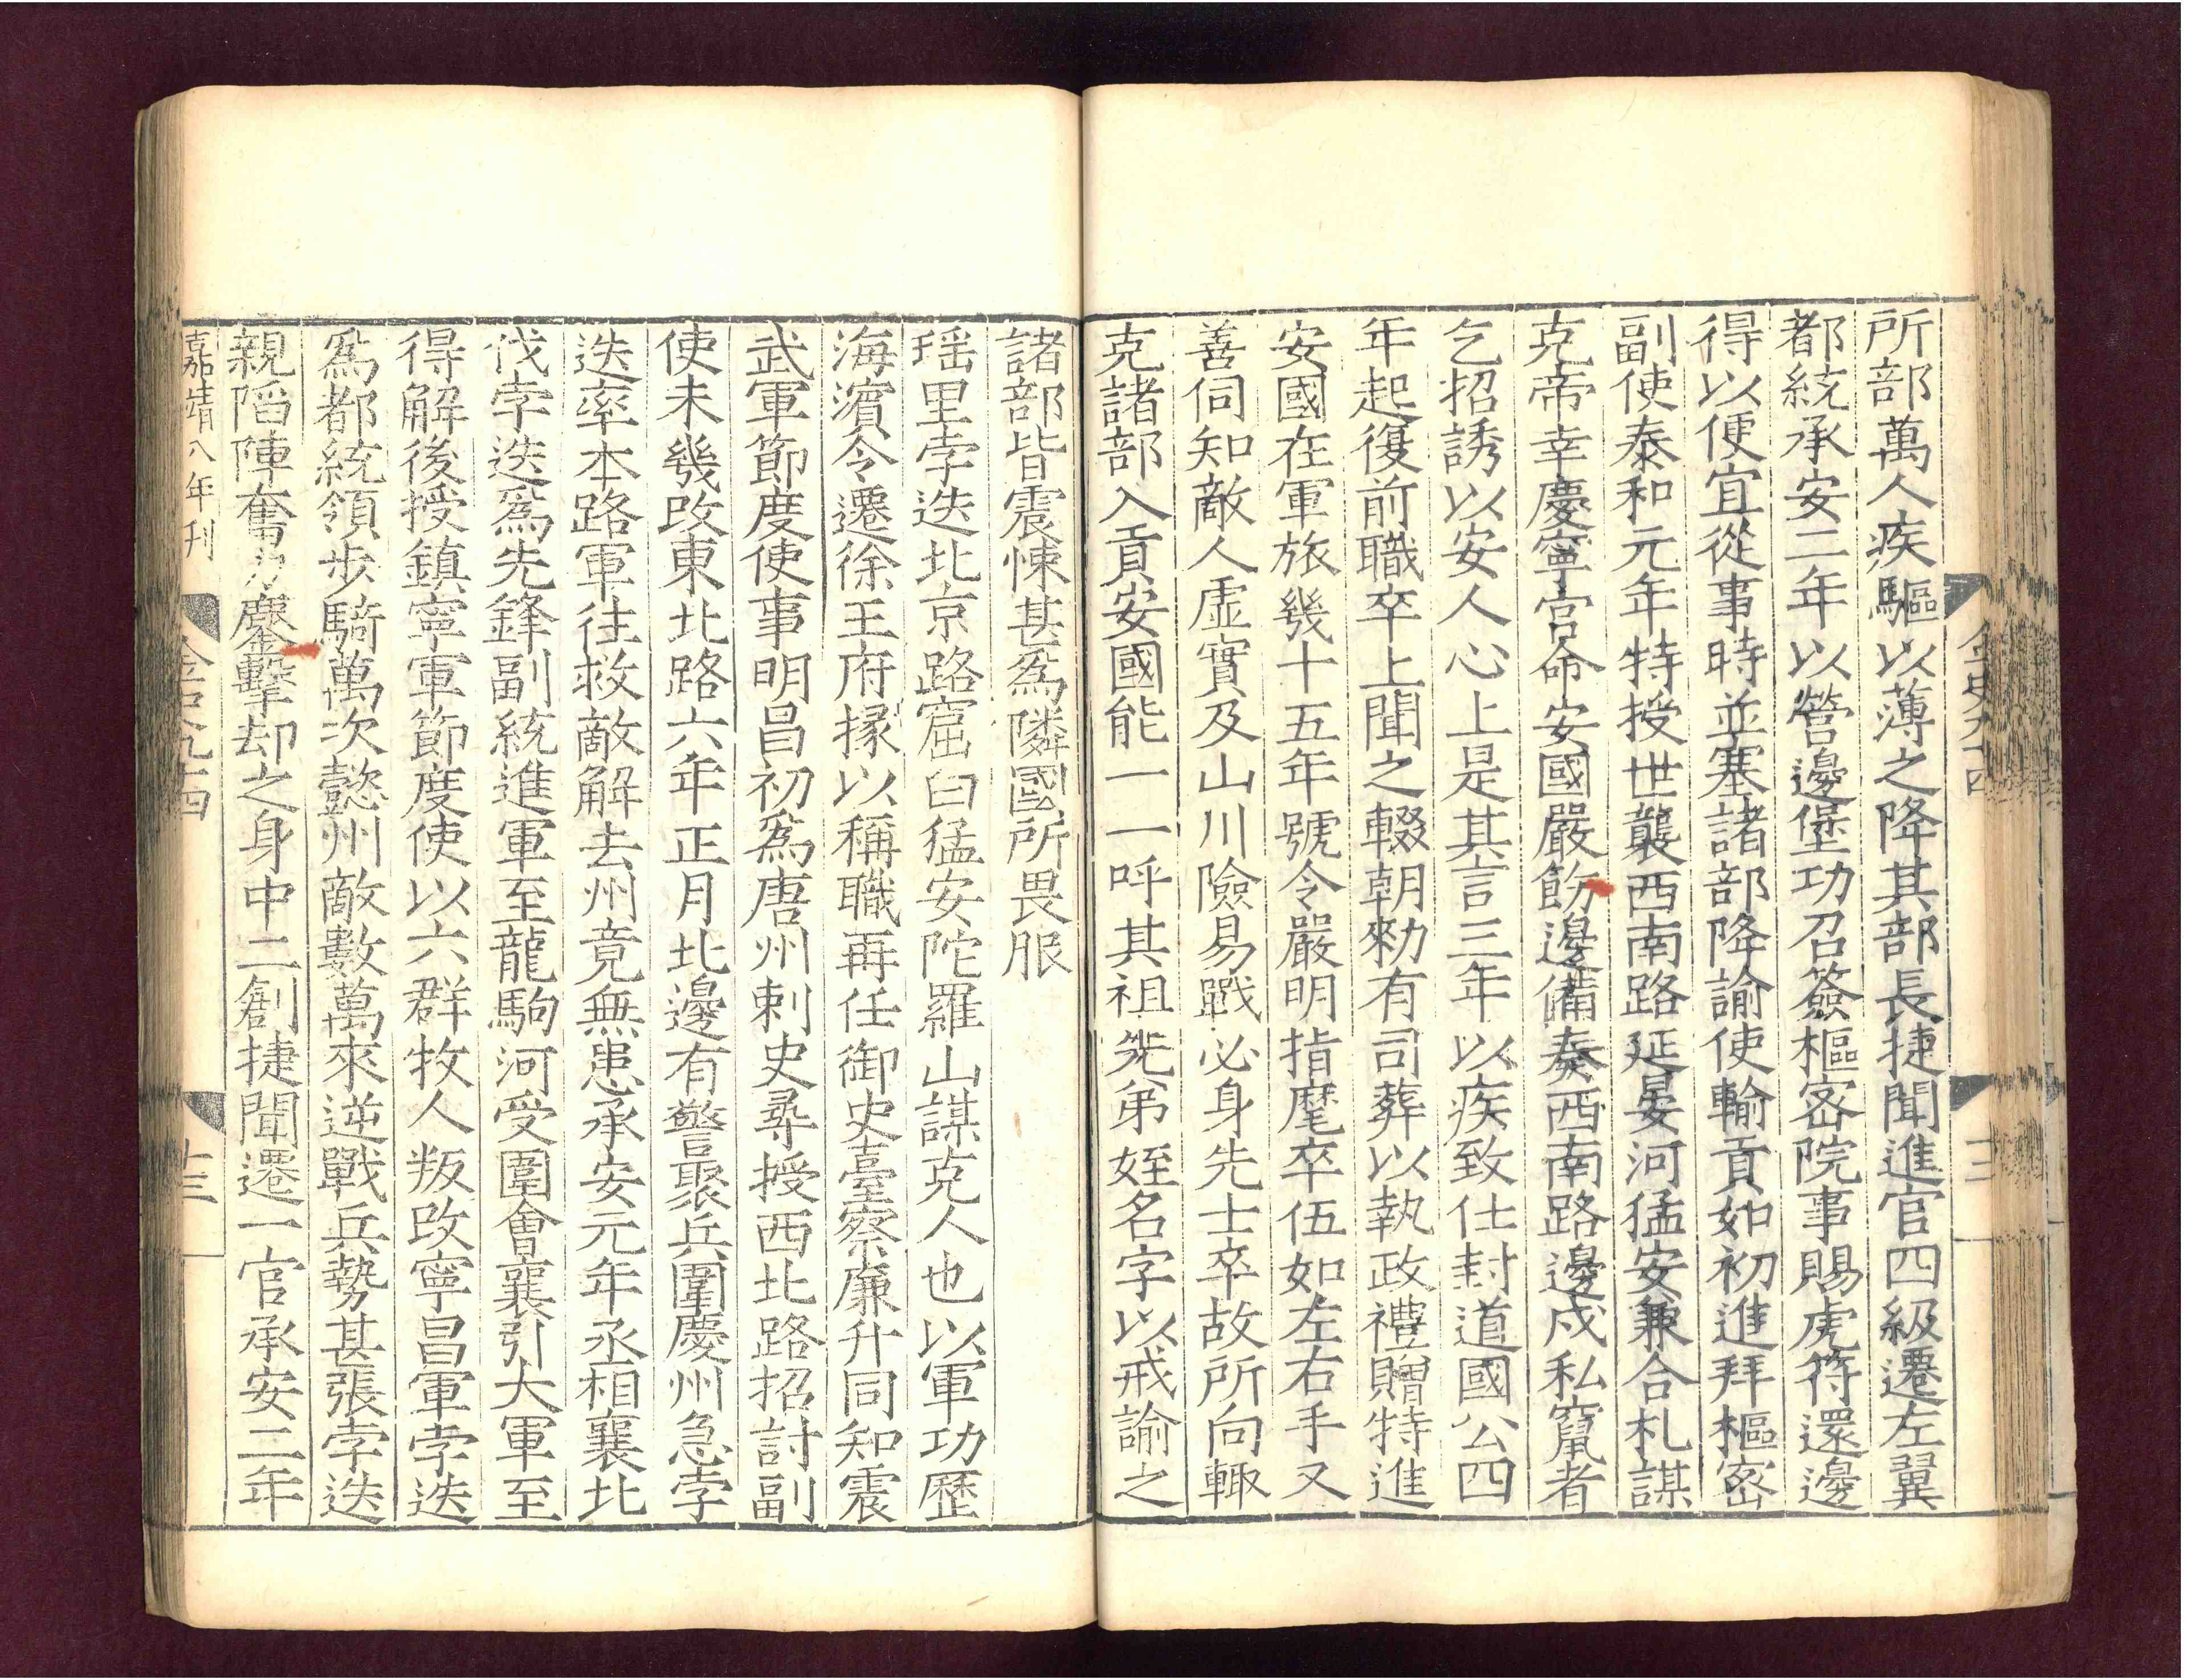 所部萬人疾驅以薄之降其部長捷聞進官四級遷左翼
都統承安二年以營邊堡功召簽樞密院事賜虎符還邊
得以便宜從事時並塞諸部降諭使輸貢如初進拜樞密
副使泰和元年特授世襲西南路延晏河猛安兼合札謀
克帝幸慶寧宮命安國嚴飭邊備奏西南路邊戍私竄者
乞招誘以安人心上是其言三年以疾致仕封道國公四
年起復前職卒上聞之輟朝勑有司葬以執政禮贈特進
安國在軍旅幾十五年號令嚴明指麾卒伍如左右手又
善伺知敵人虛實及山川險易戰必身先士卒故所向輙
克諸部入貢安國能一一呼其祖先弟姪名字以戒諭之
諸部皆震悚甚爲隣國所畏服
瑶里孛迭北京路窟白猛安陀羅山謀克人也以軍功歷
海濵令遷徐王府掾以稱職再任御史臺察廉升同知震
武軍節度使事明昌初爲唐州刺史尋授西北路招討副
使未幾改東北路六年正月北邊有警聚兵圍慶州急孛
迭率本路軍往救敵解去州竟無患承安元年丞相襄北
伐孛迭爲先鋒副統進軍至龍駒河受圍會襄引大軍至
得解後授鎮寧軍節度使以六群牧人叛改寧昌軍孛迭
爲都統領步騎萬次懿州敵數萬來逆戰兵勢甚張孛迭
親陷陣奮力鏖擊却之身中二創捷聞遷一官承安二年
嘉靖八年刊
金史九十四
十三